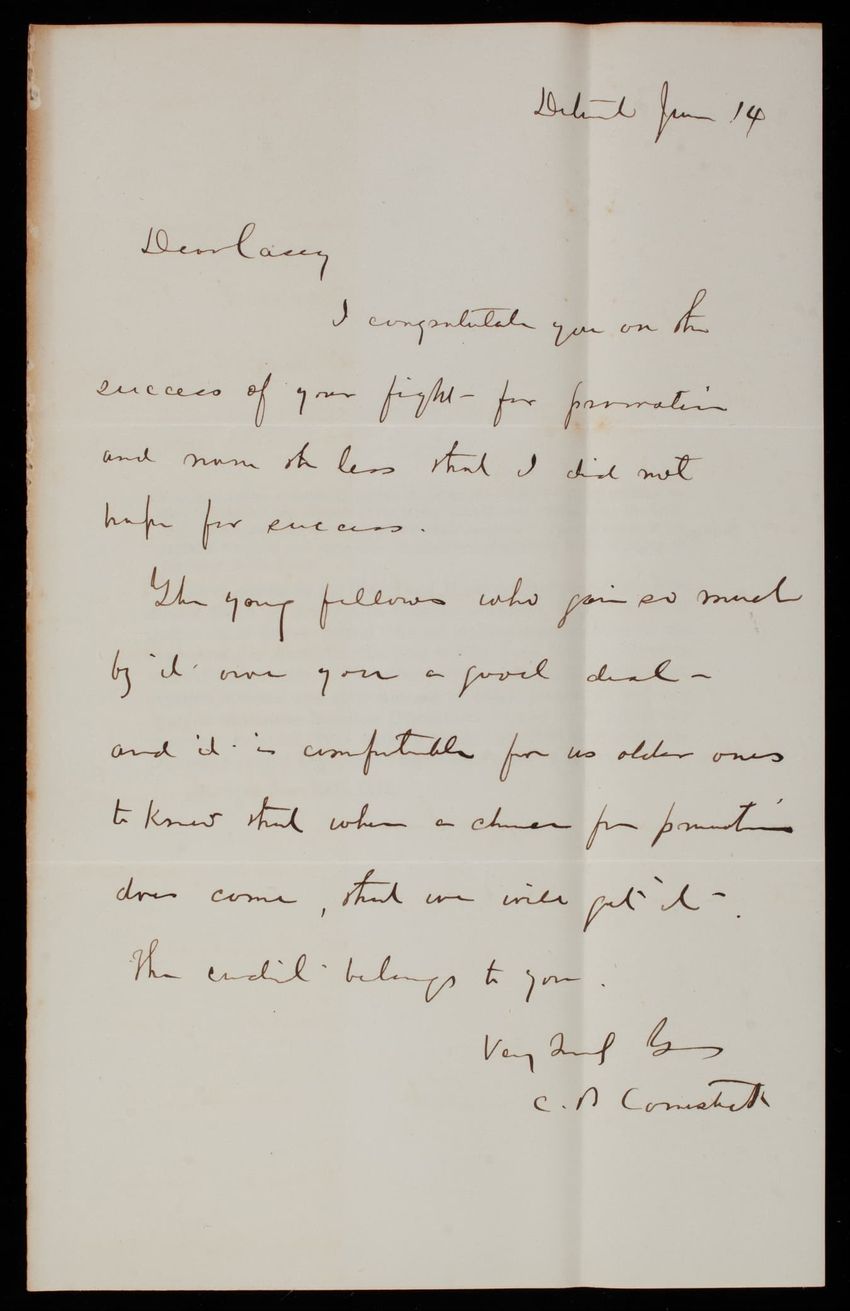 Detroit June 14
Dear Casey
I congratulate you on the
success of your fight - for promotion
and none the less that I did not
hope for success.
The young fellows who gain so much
by it owe you a good deal -
and it is comfortable for us older ones
to know that when a chance for promotion
does come, that we will get it -.
The credit belongs to you.
Very Truly Yours
C. B Comstock